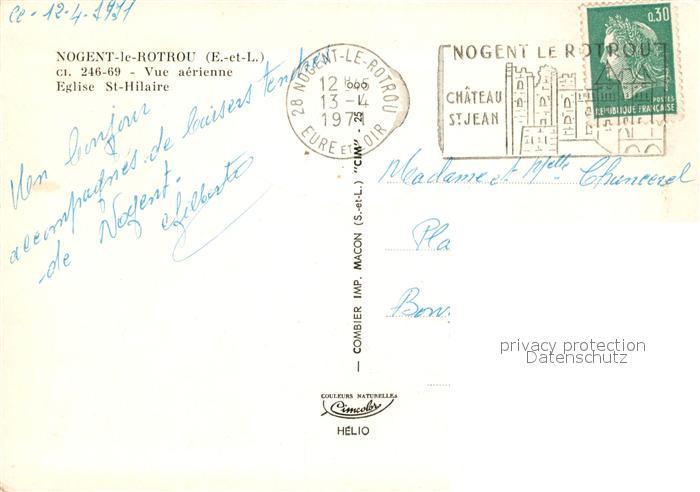 Ce - 12-4-1971
NOGENT-le-ROTROU (E.-et-L.)
CI. 246-69 - Vue aérienne
Eglise St-Hilaire
Mon bonjour
accompagnés de baisers tendres
de Nogent.
Gilberte
28 NOGENT-LE-ROTROU
12 H
13-4
1971
EURE ET LOIR
NOGENT LE ROTROU
CHÂTEAU
ST JEAN
0,30
POSTES
REPUBLIQUE FRANÇAISE
— COMBIER IMP. MACON (S.-et-L.) "CIM" - 25 L
Madame et Melle Chancerel
Pla
Bon
privacy protection
Datenschutz
COULEURS NATURELLES
Cimcolor
HÉLIO